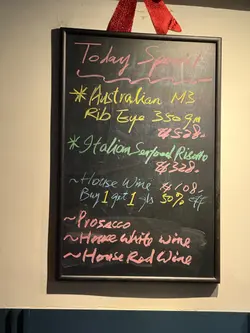 Today Special
*Australian M3
Rib Eye 350gm
528-
*Italian Seafood Risotto
328-
~House Wine 108-
Buy 1 get 1 gls 50% off
~Prosecco
~House White Wine
~House Red Wine